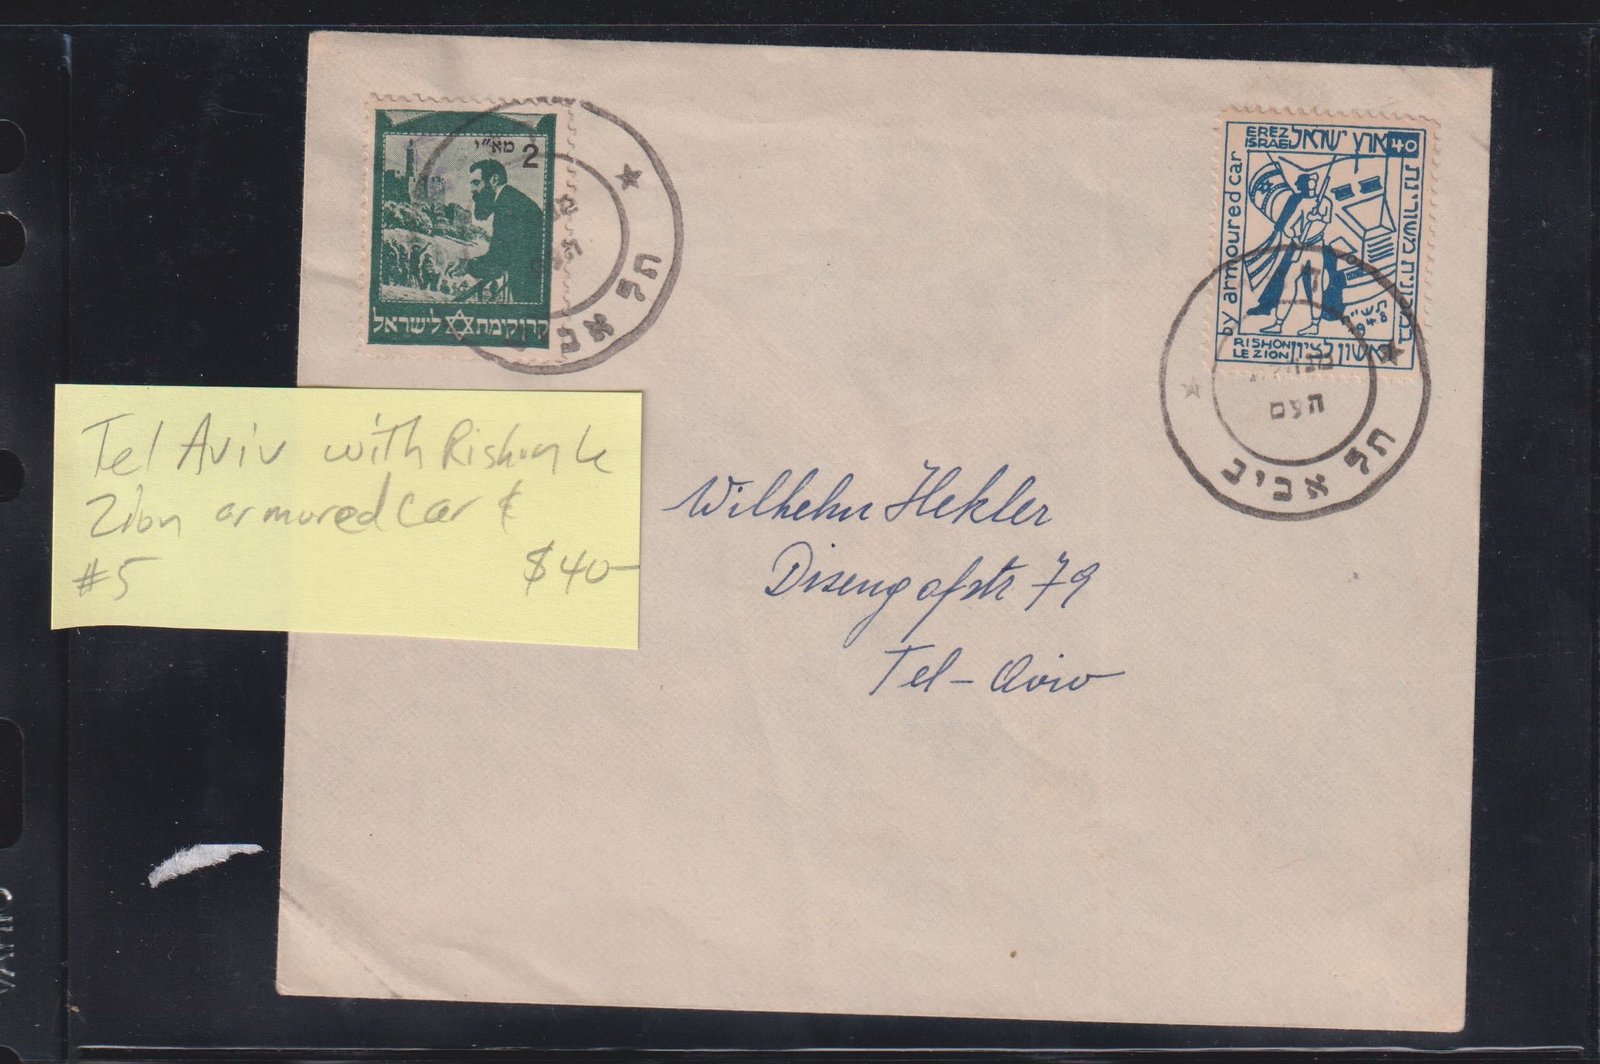 2 מא"י
קרן קימת לישראל
תל אביב
EREZ
ISRAEL
ארץ ישראל
40
by armoured car
במכונית משורינת
תש"ח
1948
RISHON
LE ZION
ראשון לציון
מנהלת
העם
תל אביב
Tel Aviv with Rishon Le
Zion armored car &
#5 $40-
Wilhelm Hekler
Disengofstr 79
Tel-Aviv